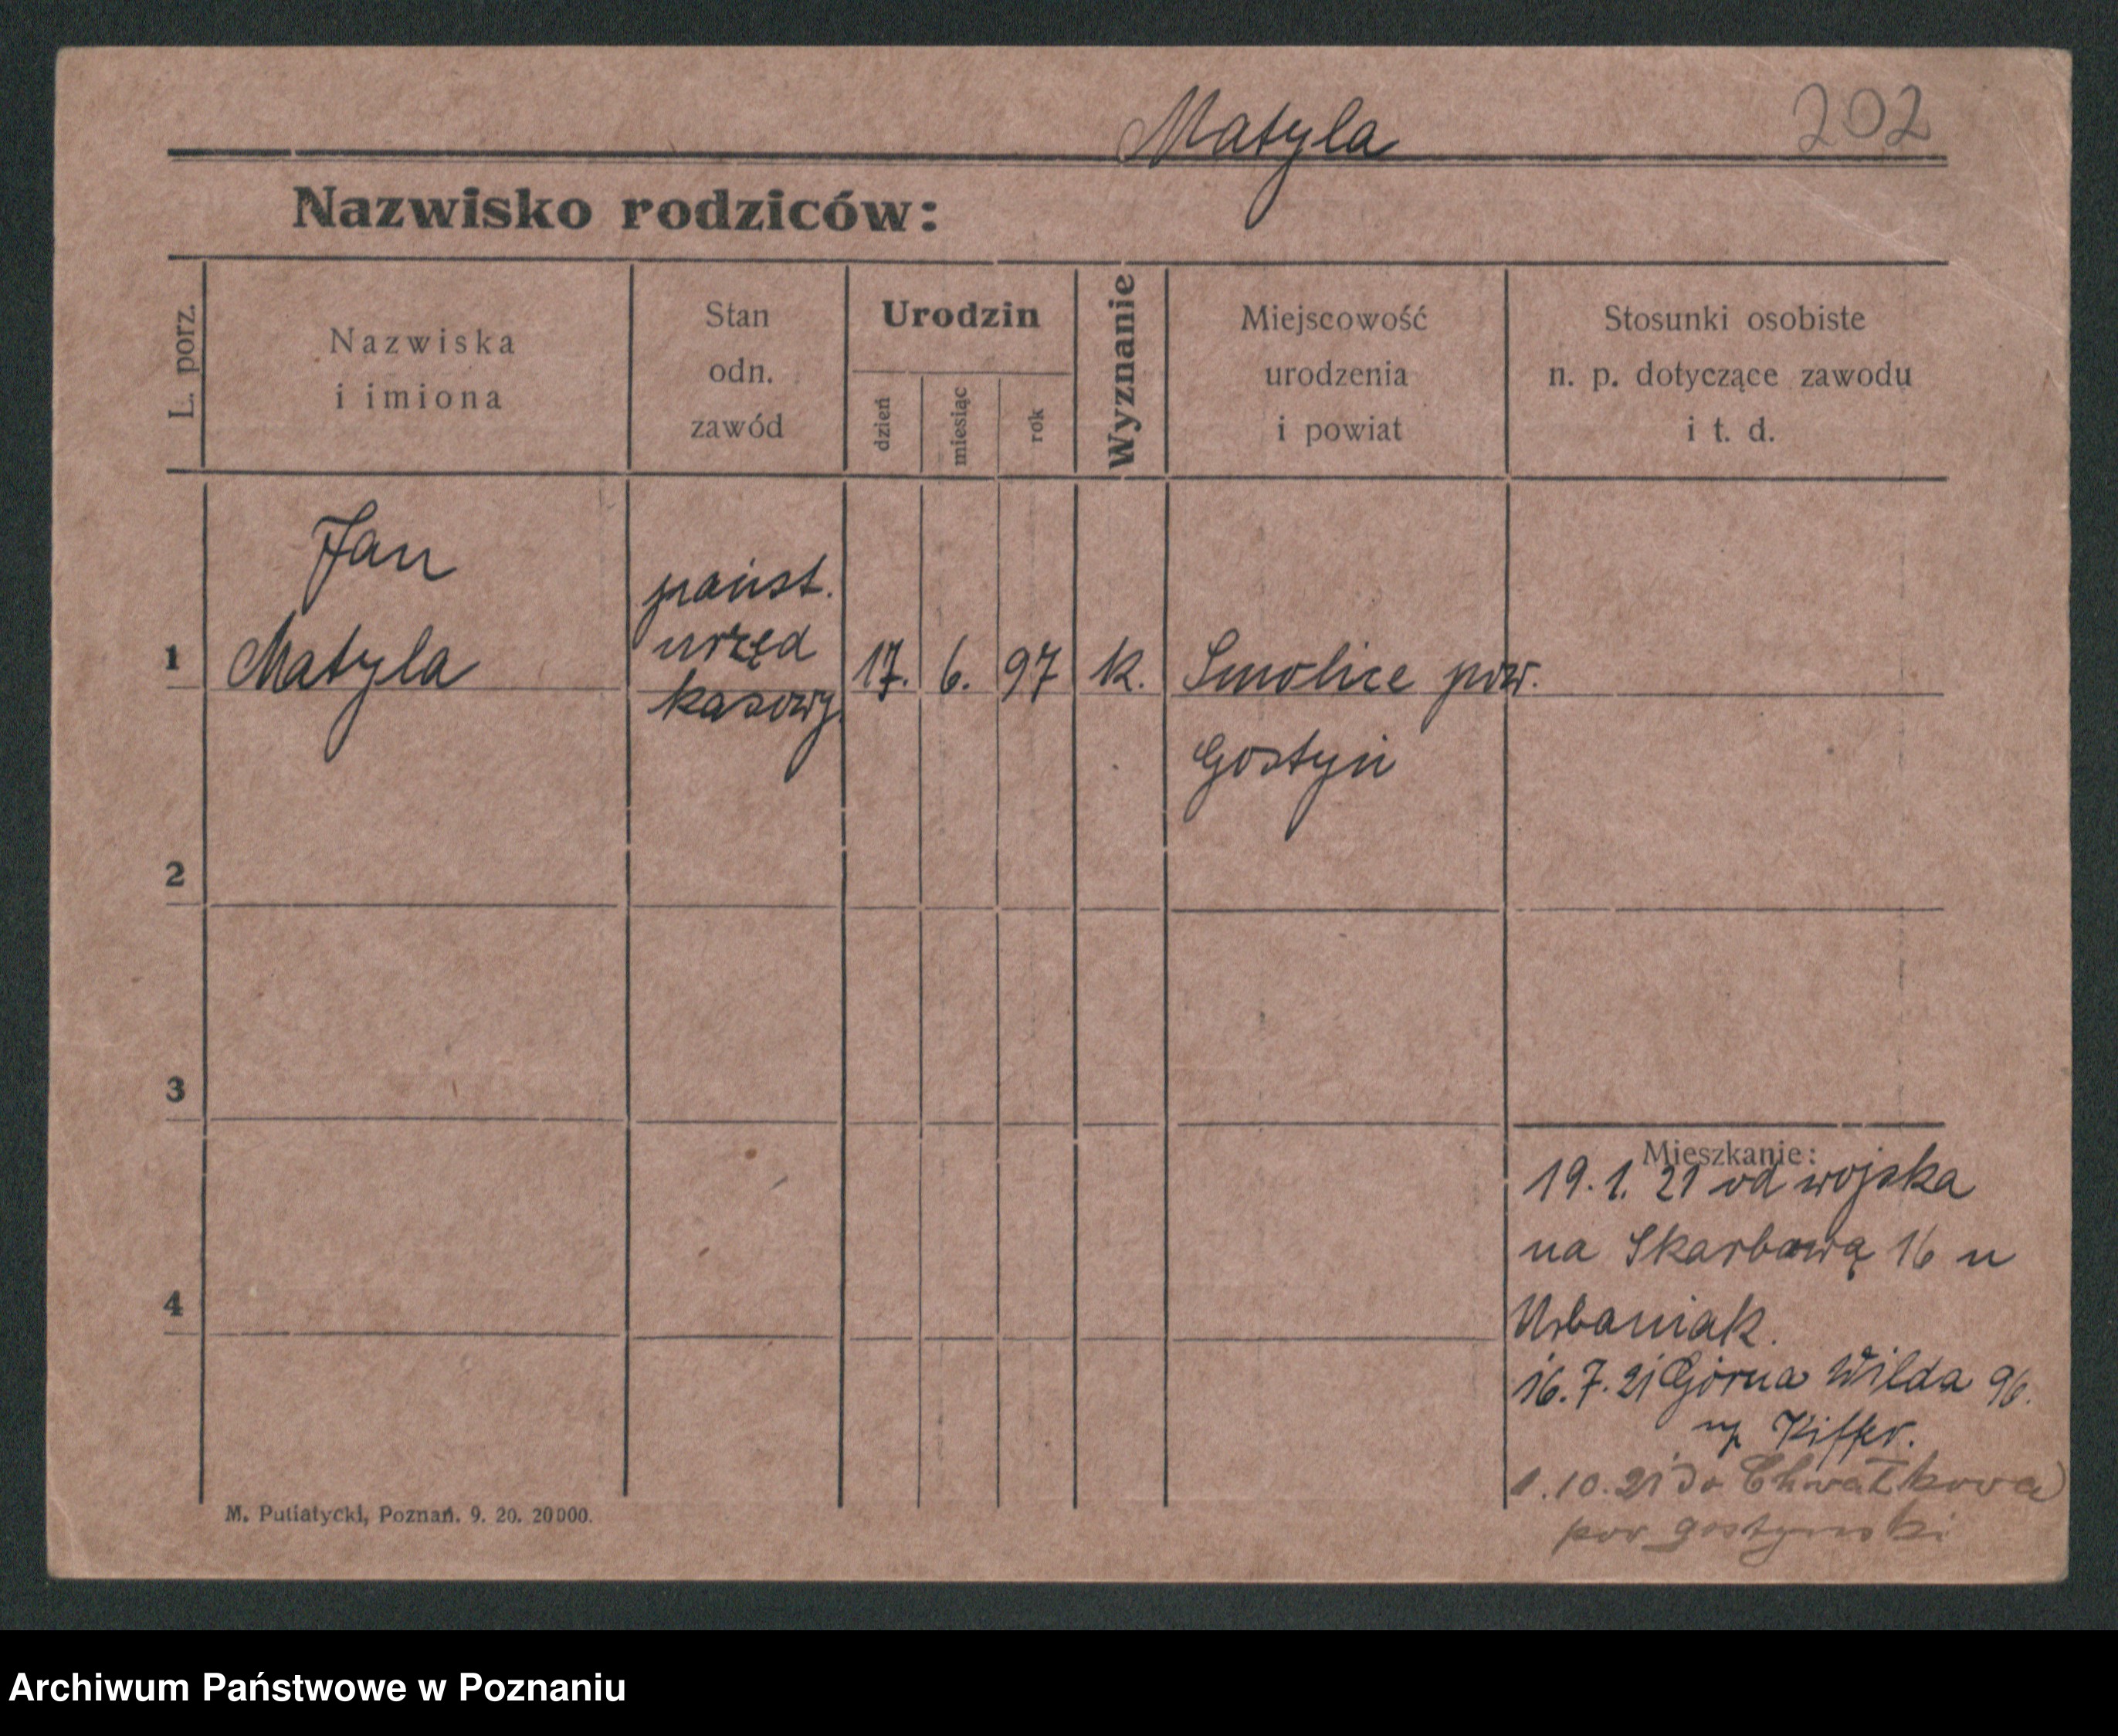 Matyla 202
Nazwisko rodziców:
L. porz.
Nazwiska
i imiona
Stan
odn.
zawód
Urodzin
dzień
miesiąc
rok
Wyznanie
Miejscowość
urodzenia
i powiat
Stosunki osobiste
n. p. dotyczące zawodu
i t. d.
Jan
państ.
urzęd
1 Matyla 17. 6. 97 k. Smolice pow.
kasowy
Gostyń
2
3
Mieszkanie:
19. 1. 21 od wojska
na Skarbową 16 u
4
Urbaniak.
16. 7. 21 Górna Wilda 96.
Kiffer.
1. 10. 21 do Chwałkowa
pow gostynski
M. Putiatycki, Poznań. 9. 20. 20000.
Archiwum Państwowe w Poznaniu